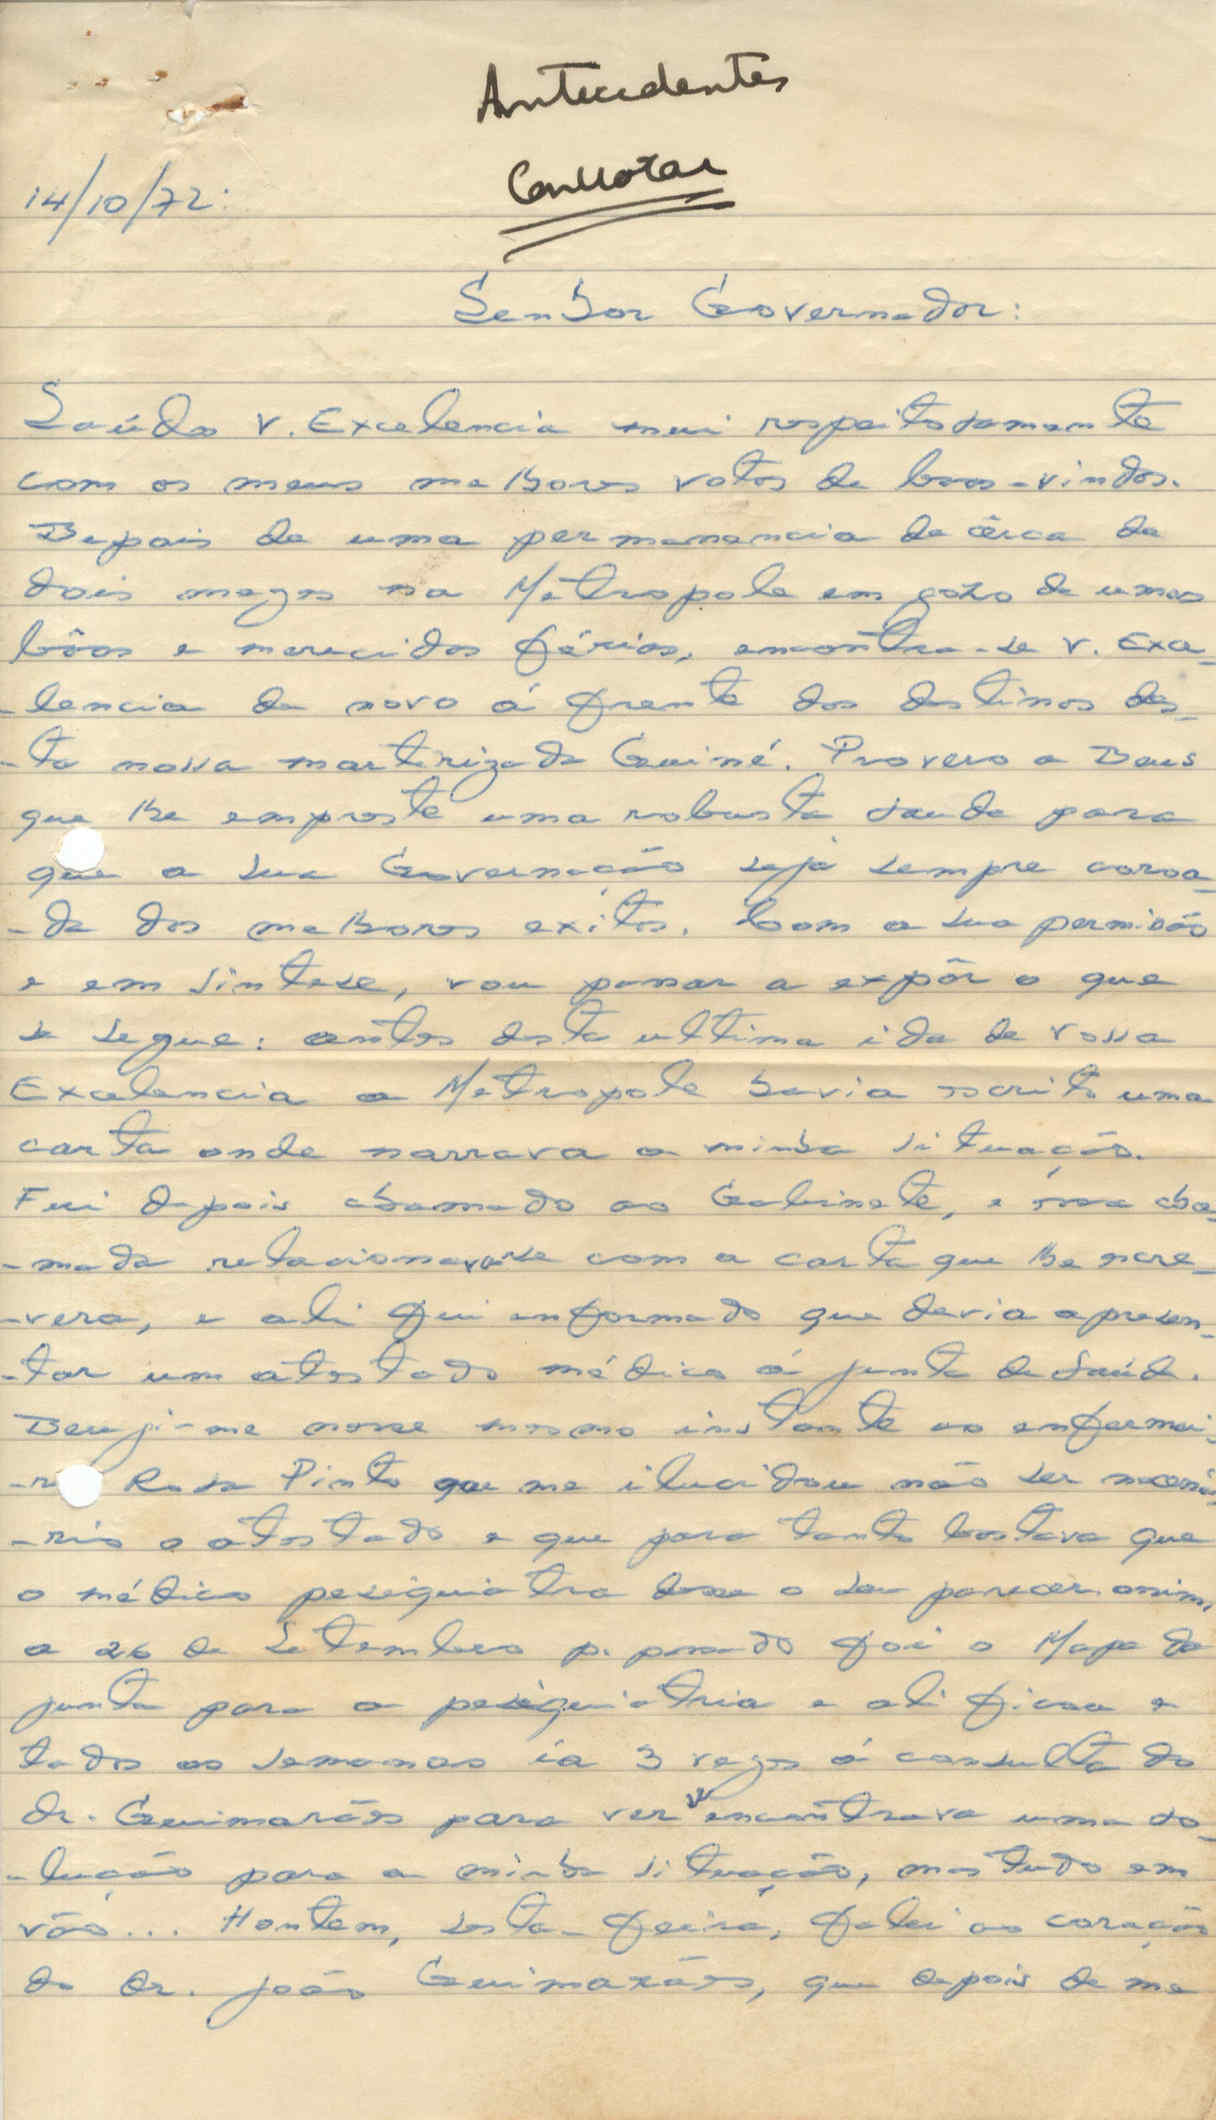 Antecedentes
14/10/72:
Senhor Governador:
Saúdo V. Excelencia mui respeitosamente
com os meus melhores votos de boas-vindas.
Depois de uma permanencia de cêrca de
dois mezes na Metropole em gozo de umas
bôas e merecidas férias, encontra-se V. Exce-
-lencia de novo á frente dos destinos des-
-ta nossa martirizada Guiné. Provero a Deus
que lhe empreste uma robusta saude para
que a sua Governação seja sempre coroa-
-da dos melhores exitos. Com a sua permisão
e em sintese, vou passar a expôr o que
se segue: antes desta ultima ida de Vossa
Excelencia a Metropole havia escrito uma
carta onde narrava a minha situação.
Fui depois chamado ao Gabinete, e essa cha-
-mada relacionava-se com a carta que lhe escre-
-vera, e ali fui informado que devia apresen-
-tar um atestado médico á junta de Saúde.
Derigi-me nesse mesmo instante ao enfermei-
-ro Rosa Pinto que me ilucidou não ser necessá-
-rio o atestado e que para tanto bastava que
o médico pesiquiatra desse o seu parecer. assim,
a 26 de Setembro p. passado foi o Mapa da
junta para a pesiquiatria e ali ficou e
todas as semanas ia 3 vezes á consulta do
dr. Guimarães para ver se encontrava uma so-
-lução para a minha situação, mas tudo em
vão... Hontem, sesta-feira, falei ao coração
do dr. joão Guimarães, que depois de me